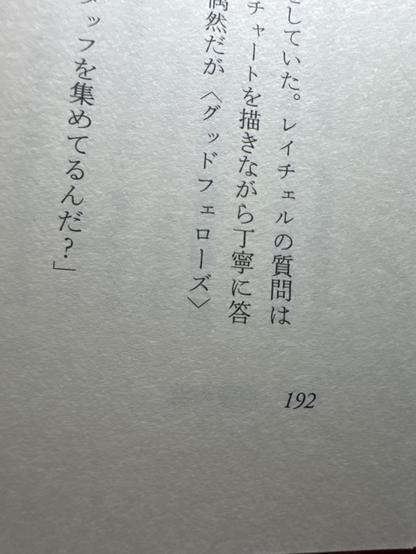 していた。レイチェルの質問は
チャートを描きながら丁寧に答
偶然だが〈グッドフェローズ〉
タッフを集めてるんだ？」
192